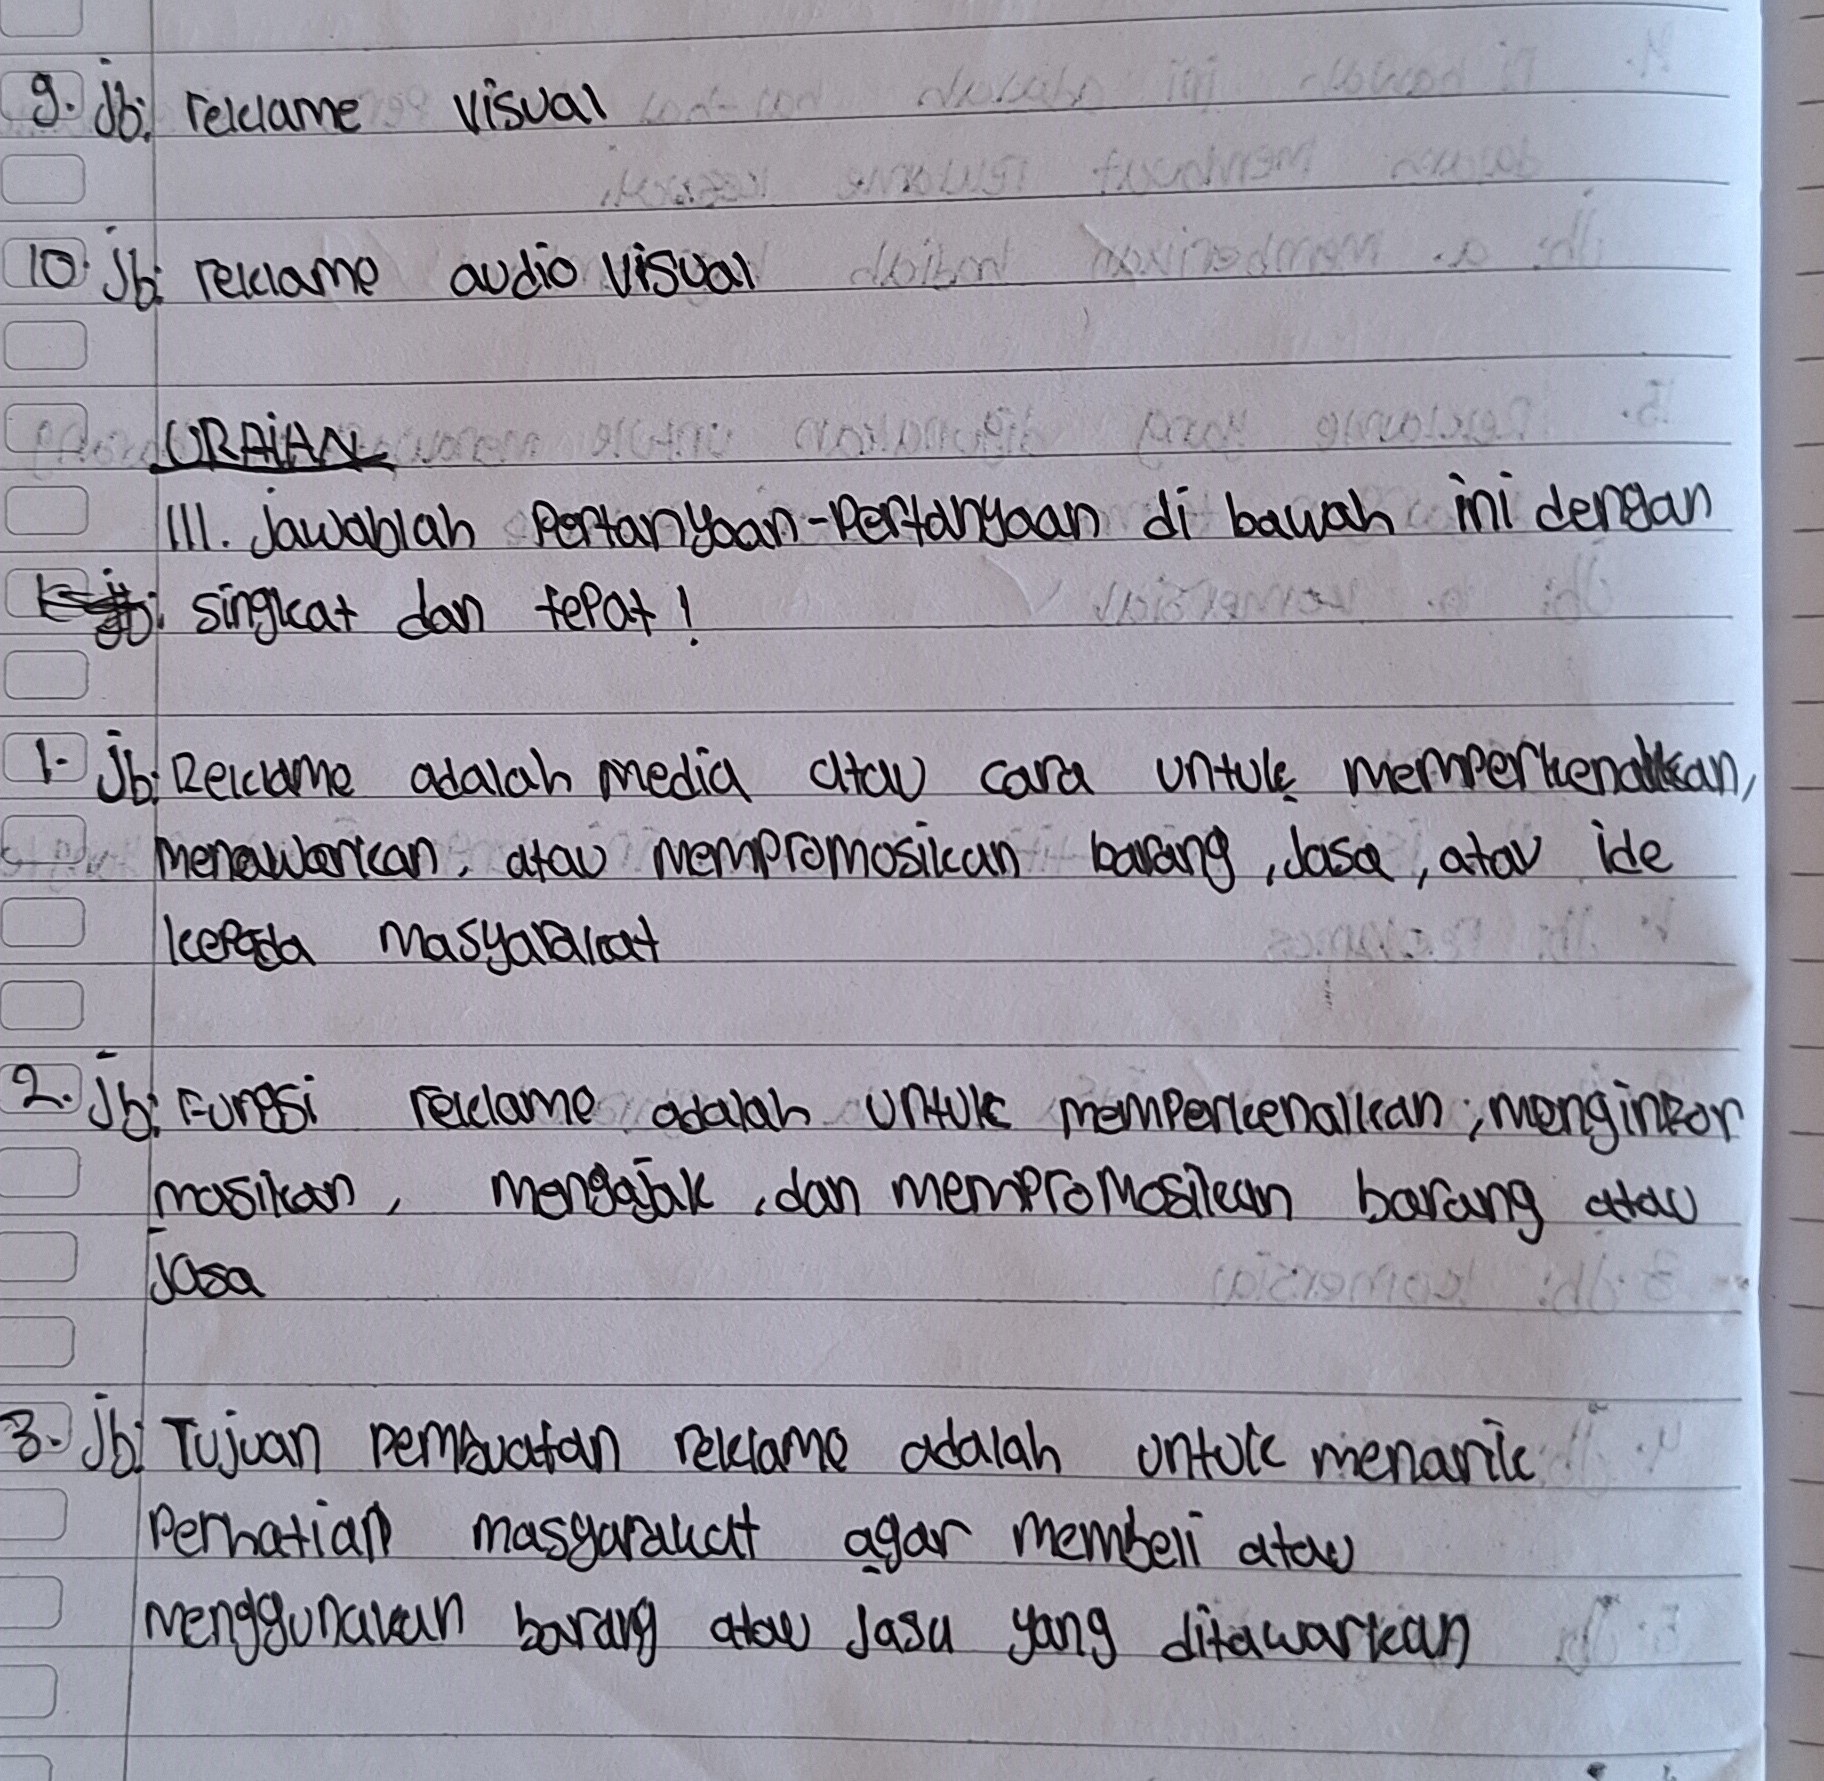 9. Jb: reklame visual
10. Jb: reklame audio visual
URAIAN
III. Jawablah Pertanyaan-Pertanyaan di bawah ini dengan
singkat dan tepat!
1. Jb: Reklame adalah media atau cara untuk memperkenalkan,
menawarkan, atau mempromosikan barang, Jasa, atau ide
kepada masyarakat
2. Jb: Fungsi reklame adalah untuk memperkenalkan, menginfor
masikan, mengajak, dan mempromosikan barang atau
Jasa
3. Jb: Tujuan pembuatan reklame adalah untuk menarik
Perhatian masyarakat agar membeli atau
menggunakan barang atau Jasa yang ditawarkan